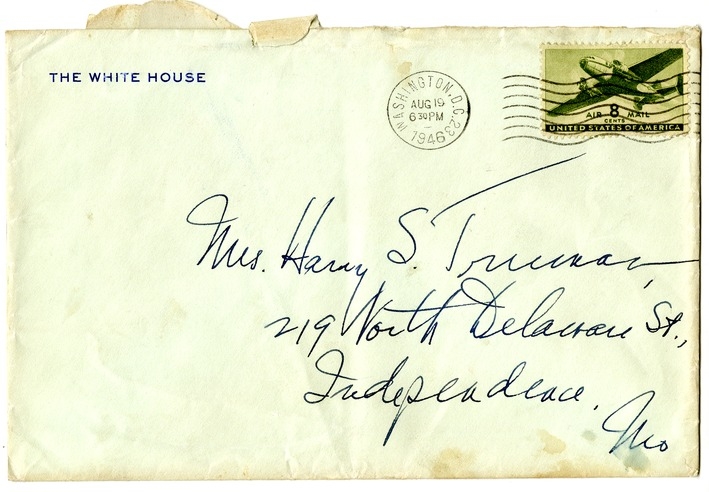 THE WHITE HOUSE
WASHINGTON, D.C. 23
AUG 19
6 30 PM
1946
AIR 8 MAIL
CENTS
UNITED STATES OF AMERICA
Mrs. Harry S. Truman,
219 North Delaware St.,
Independence,
Mo